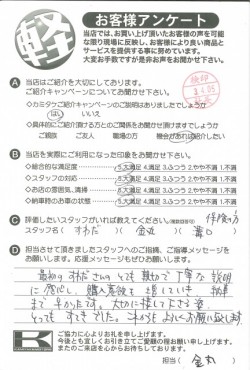 軽
お客様アンケート
当店では、お買い上げ頂いたお客様の声を可能
な限り現場に反映し、お客様により良い商品と
サービスを提供すべく努めております。
大変お手数ですが是非お声をお聞かせ下さい。
A 当店はご紹介を大切にしております。
ご紹介キャンペーンについてお聞かせ下さい。
◇カミタケご紹介キャンペーンのご説明はありましたでしょうか
はい いいえ
◇具体的にご紹介頂ける方とのご関係をお聞かせ頂けますでしょうか
ご親族 ご友人 職場の方 機会があれば紹介したい
B 当店を実際にご利用になった印象をお聞かせ下さい。
◇総合的な満足度 5.大満足 4.満足 3.ふつう 2.やや不満 1.不満
◇スタッフの対応 5.大満足 4.満足 3.ふつう 2.やや不満 1.不満
◇お店の雰囲気、清掃 5.大満足 4.満足 3.ふつう 2.やや不満 1.不満
◇納車時のお車の状態 5.大満足 4.満足 3.ふつう 2.やや不満 1.不満
C 評価したいスタッフがいれば教えてください。
スタッフ名
D 担当させて頂きましたスタッフへのご指摘、ご指導メッセージを
お願いします。応援メッセージもぜひお願いします。
最初の すわださんの とても 親切で 丁寧な 説明
に 感心し、購入意欲も 増していき 納車
まで
とっても すてきでした。これからも よろしくお願い致します
K
ご協力に心よりお礼を申し上げます。
今後とも宜しくお引き立てご愛顧の程お願い申し上げます。
またのご来店を心からお待ちしております。
担当(金丸)